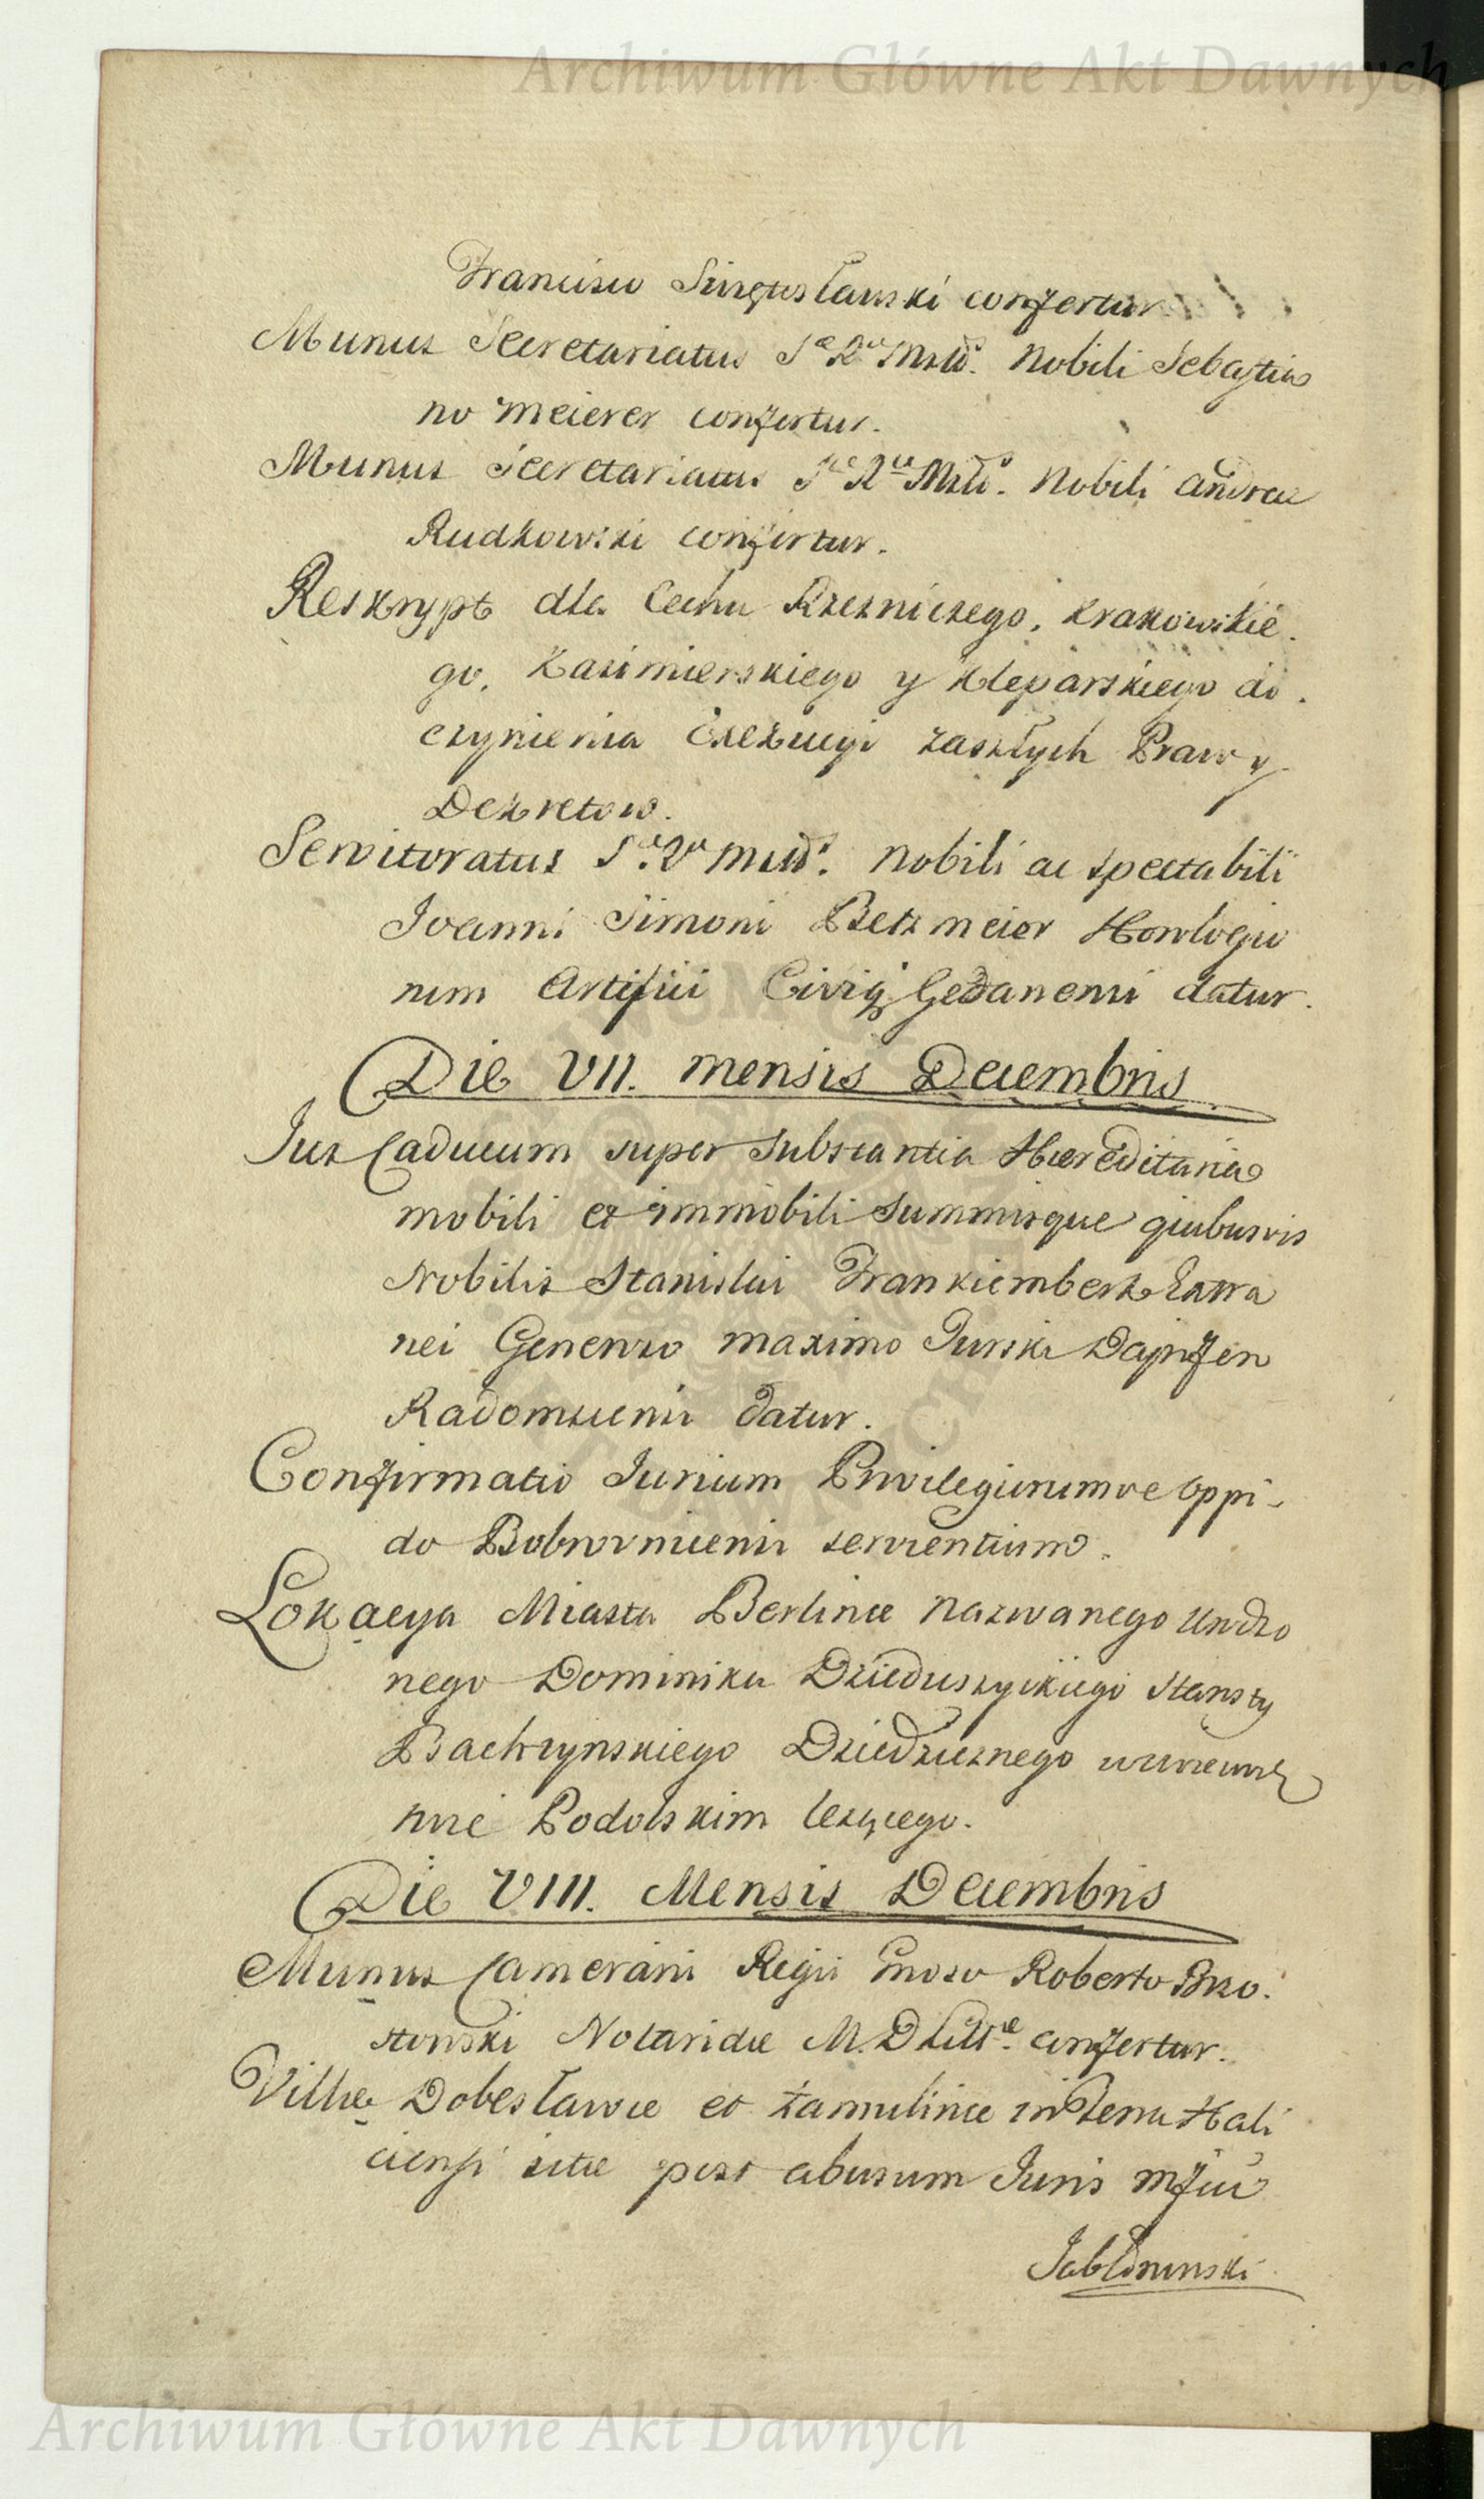 Archiwum Główne Akt Dawnych
Francisco Swiętosławski confertur
Munus Secretariatus S. R. Mttis. Nobili Sebastia
no Meierer confertur.
Munus Secretariatus S. R. Mttis. Nobili Andreae
Rudkowski confertur.
Reskrypt dla Cechu Rzeznickego, Krakowskie.
go, Kazimierskiego y Kleparskiego do
czynienia Exekucyi zaszłych Praw y
Dekretow.
Servitoratus S. R. Mttis. Nobili ac Spectabili
Joanni Simoni Betzmeier Horologio
rum Artifici Civiq Gedanensi datur.
Die VII. mensis Decembris
Jus Caducum super substantia Haereditaria
mobili et immobili Summisque quibusvis
Nobilis Stanislai Frankiembergk Extra
nei Generoso Maximo Turski Dapifero
Radomscensi datur.
Confirmatio Jurium Privilegiorumve Oppi-
do Bobrovnicensi servientium.
Lokacya Miasta Berlince nazwanego Urodzo
nego Dominika Dzieduszyckiego Starosty
Bachrynskiego Dziedzicznego w
Podolskim lezącego.
Die VIII. Mensis Decembris
Munus Camerarii Regii Gnoso Roberto Brzo.
stowski Notaridae M. D. Litt. confertur.
Villae Dobesławce et Zamulince in Terra Hali
ciensi sitae post abusum Juris
Jabłonowski
Archiwum Główne Akt Dawnych